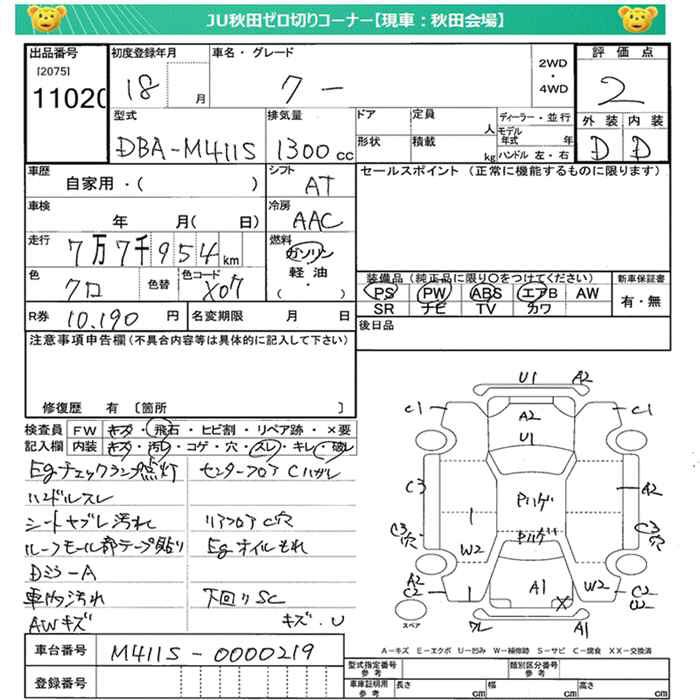 JU秋田ゼロ切りコーナー【現車：秋田会場】
出品番号 初度登録年月 車名・グレード 評価点
[2075]
11020 18 月 クー 2WD・4WD 2
型式 排気量 ドア 定員 人 ディーラー・並行 外装 内装
モデル年式 年
DBA-M411S 1300cc 形状 積載 kg ハンドル 左・右 D D
車歴 シフト セールスポイント（正常に機能するものに限ります）
自家用・( ) AT
車検 冷房
年 月( 日) AAC
走行 燃料
7万7千954km ガソリン
軽油
( ・ )
色 色替 色コード 装備品（純正品に限り○をつけてください） 新車保証書
クロ X07 PS PW ABS エアB AW 有・無
SR ナビ TV カワ
R券 10,190円 名変期限 月 日 後日品
注意事項申告欄（不具合内容等は具体的に記入して下さい）
修復歴 有 〔箇所 〕
検査員 FW キズ・飛石・ヒビ割・リペア跡・×要
記入欄 内装 キズ・汚レ・コゲ・穴・スレ・キレ・破レ
Egチェックランプ点灯 センターフロアCハガレ
ハンドルスレ
シートヤブレ汚れ リアフロアC穴
ルーフモール部テープ貼り Egオイルもれ
Dミラ-A
車内汚れ 下回りSC
AWキズ キズ・U
U1 A2
C1 A2 C1
U1
C3 Pハゲ A2
1
C3穴 Pハゲ C3穴
W2
A2 C2 A1 W2 C2 W2
1 X
スペア ワレ A1
A-キズ E-エクボ U-凹み W-補修跡 S-サビ C-腐食 XX-交換済
車台番号 M411S-0000219
登録番号
型式指定番号 参考 類別区分番号 参考
車庫証明用 参考 長さ cm 幅 cm 高さ cm